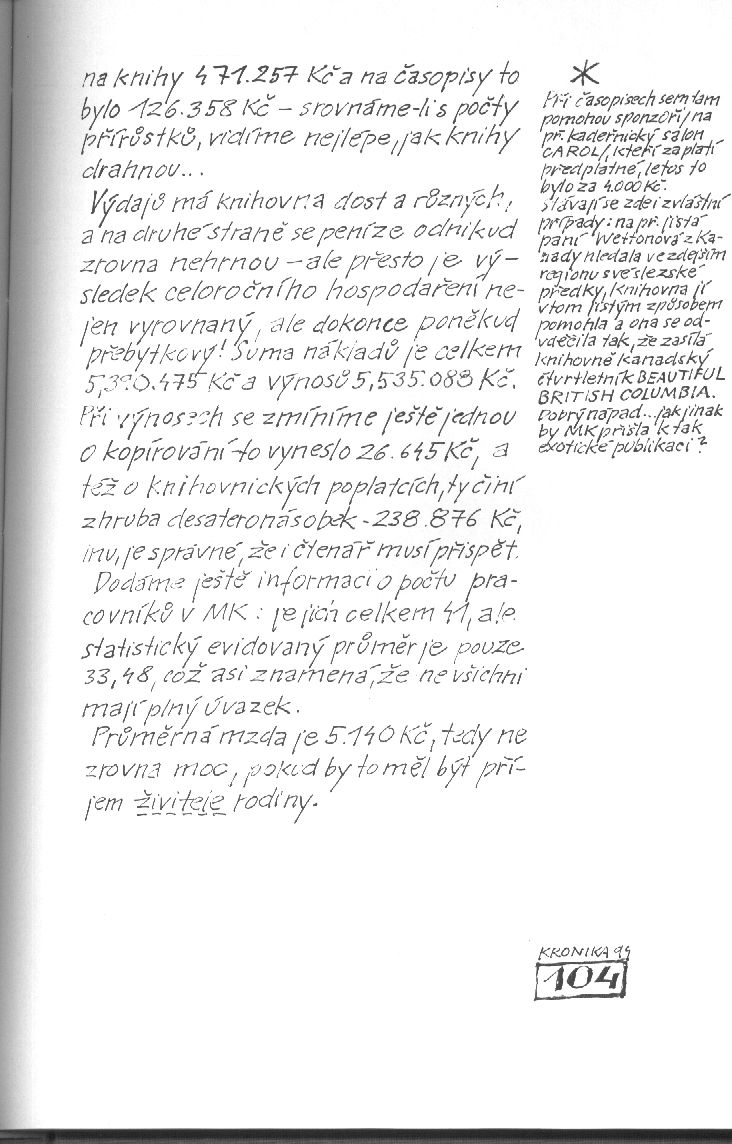 na knihy 471.257 Kč a na časopisy to
bylo 126.358 Kč – srovnáme-li s počty
přírůstků, vidíme nejlépe, jak knihy
drahnou...
Výdajů má knihovna dost a různých,
a na druhé straně se peníze odnikud
zrovna nehrnou – ale přesto je vý-
sledek celoročního hospodaření ne-
jen vyrovnaný, ale dokonce poněkud
přebytkový! Suma nákladů je celkem
5,390.475 Kč a výnosů 5,535.088 Kč.
Při výnosech se zmíníme ještě jednou
o kopírování – to vyneslo 26.645 Kč, a
též o knihovnických poplatcích, ty činí
zhruba desateronásobek - 238.876 Kč,
inu, je správné, že i čtenář musí přispět.
Dodáme ještě informaci o počtu pra-
covníků v MK : je jich celkem 41, ale
statistický evidovaný průměr je pouze
33,48, což asi znamená, že ne všichni
mají plný úvazek.
Průměrná mzda je 5.140 Kč, tedy ne
zrovna moc, pokud by to měl být pří-
jem živitele rodiny.
*
Při časopisech sem tam
pomohou sponzoři /na
př. kadeřnický salon
CAROL/, kteří zaplatí
předplatné, letos to
bylo za 4.000 Kč.
Stávají se zde i zvláštní
případy: na př. jistá
paní Wettonová z Ka-
nady hledala ve zdejším
regionu své slezské
předky, knihovna jí
v tom jistým způsobem
pomohla a ona se od-
vděčila tak, že zasílá
knihovně kanadský
čtvrtletník BEAUTIFUL
BRITISH COLUMBIA.
Dobrý nápad... jak jinak
by MK přišla k tak
exotické publikaci?
KRONIKA 94
104